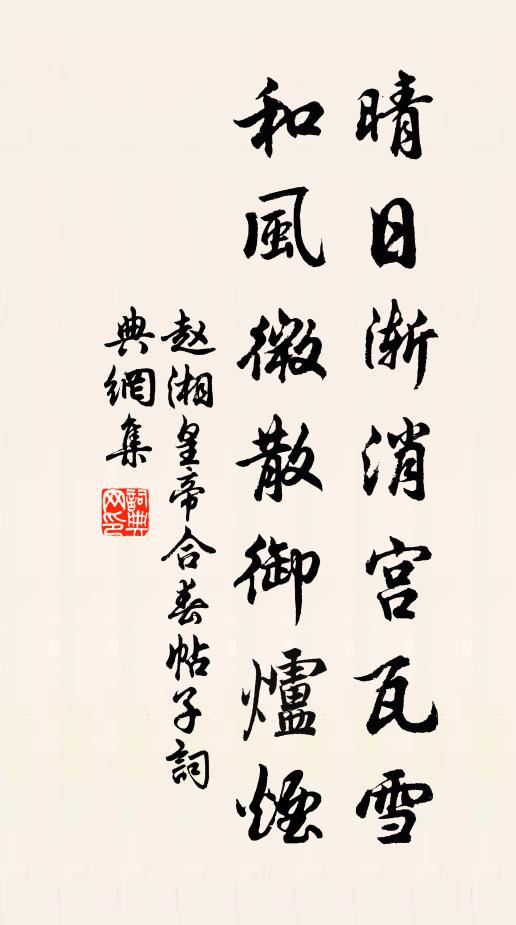 晴日渐消宫瓦雪
和風微散御爐煙
赵湘皇帝合春帖子詞
典網集
詞典网印